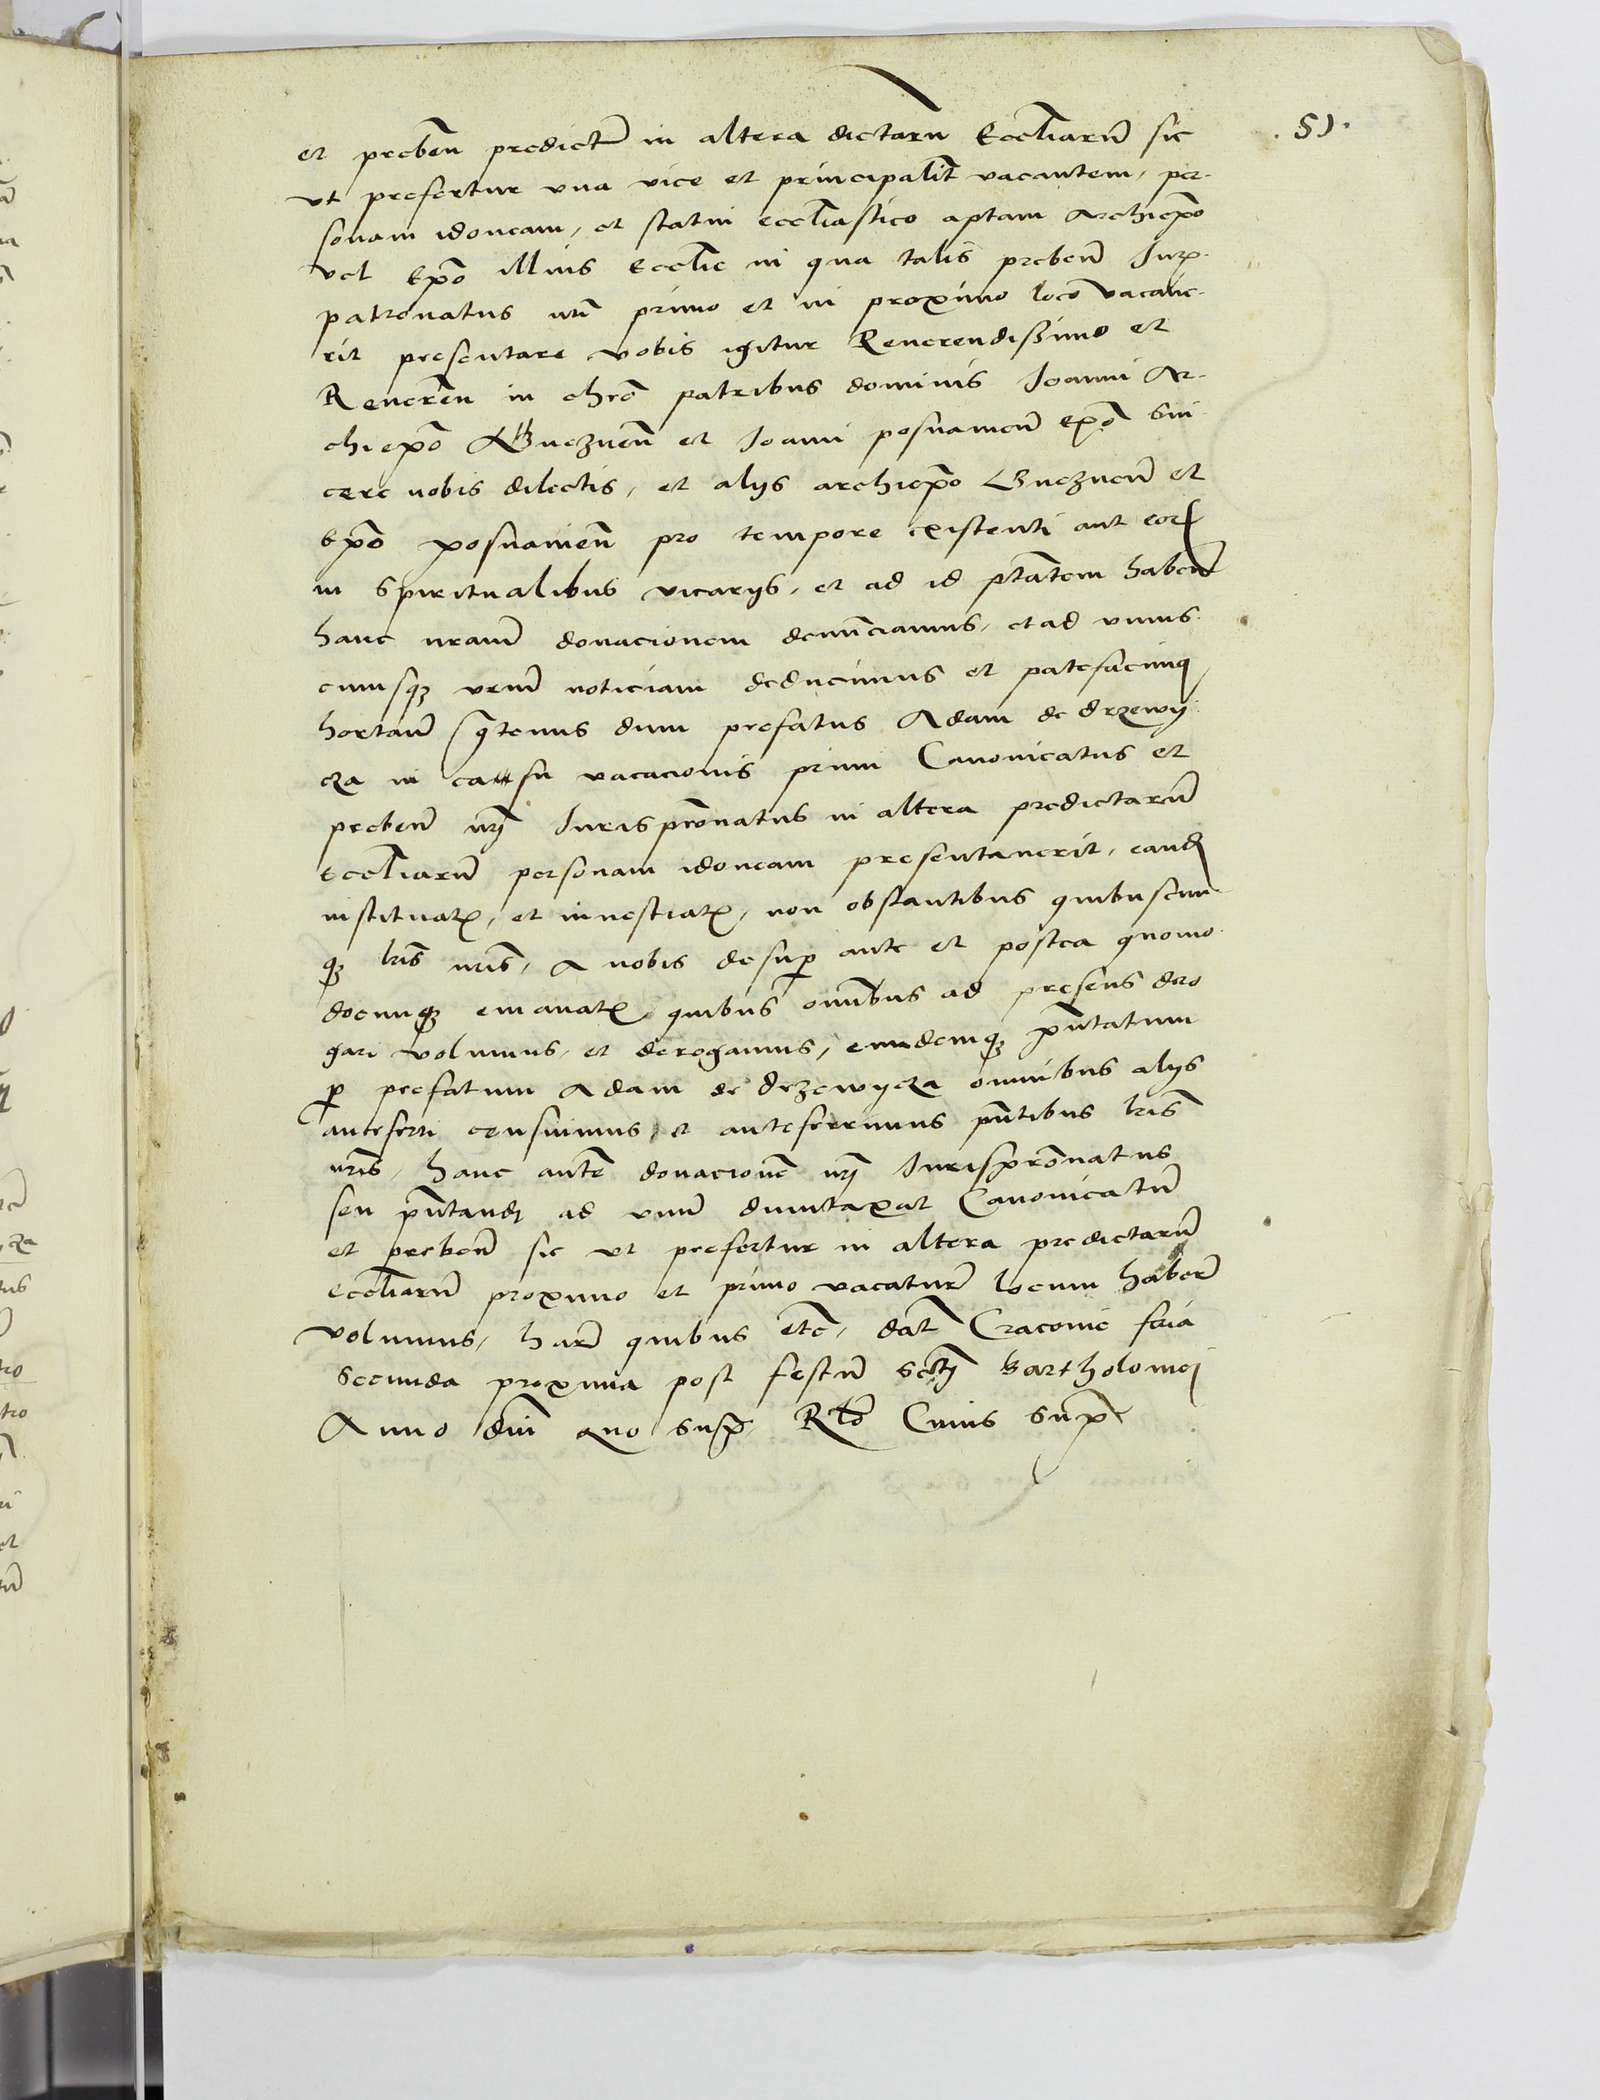 . 51 .
et preben̄ predict̄ in altera dictaru Eccliarū sic
vt prefertur vna vice et principalit̄ vacantem, per-
sonam idoneam, et statui eccliastico aptam Archiep̄o
vel Ep̄o illius Ecclie in qua talis prebeñ Jur
patronatus nr̄i primo et in proximo loco vacaue-
rit presentare vobis igitur Reuerendissimo et
Reueren̄ in chrō patribus dominis Joanni Ar-
chiep̄o Gneznen̄ et Joanni posnanien̄ Ep̄o sin
cere nobis dilectis, et alys archiep̄o Gneznen̄ et
Ep̄o posnanien̄ pro tempore existenti aut eor
in spiritualibus vicarys, et ad id p̄tatem haben̄
hanc nram̄ donacionem denuñciamus, et ad vnius
cuiusqȝ vrūm noticiam deducimus et patefacimq
hortan̄ qtenus dum prefatus Adam de drzewy
cza in casu vacacionis primi Canonicatus et
prebeñ nr̄j Jurispr̄onatus in altera predictarū
Eccliarū personam idoneam presentauerit, eand
instituatȝ, et inuestiatȝ, non obstantibus quibuscun-
qȝ lr̄is nr̄is, A nobis desup ante et postea quomo
docunqȝ emanatȝ quibus omnibus ad presens dero
gari volumus, et derogamus, eundemqȝ pn̄tatum
p prefatum Adam de drzewycza omnibus alys
anteferri censuimus, et anteferrimus pn̄tibus lr̄is
nr̄is, hanc aūte donacionē nr̄j Jurispr̄onatus
seu pn̄tandj ad vnum duntaxat Canonicatū
et prebeñ sic vt prefertur in altera predictarū
eccliarū proximo et primo vacaturȝ locum haberē
volumus, harū quibus etc, dat̄ Cracouie feria
Secunda proxima post festū Sctj Bartholomej
Anno dn̄i quo supȓ, Rtō Cuius supȓ